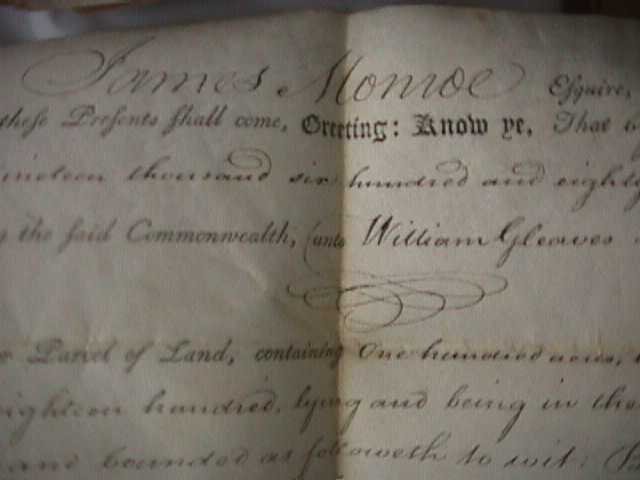 James Monroe Esquire,
these Presents shall come, Greeting: Know ye, That
nineteen thousand six hundred and eighty
the said Commonwealth, unto William Gleaves
Parcel of Land, containing One hundred acres,
eighteen hundred, lying and being in the
and bounded as followeth to wit: